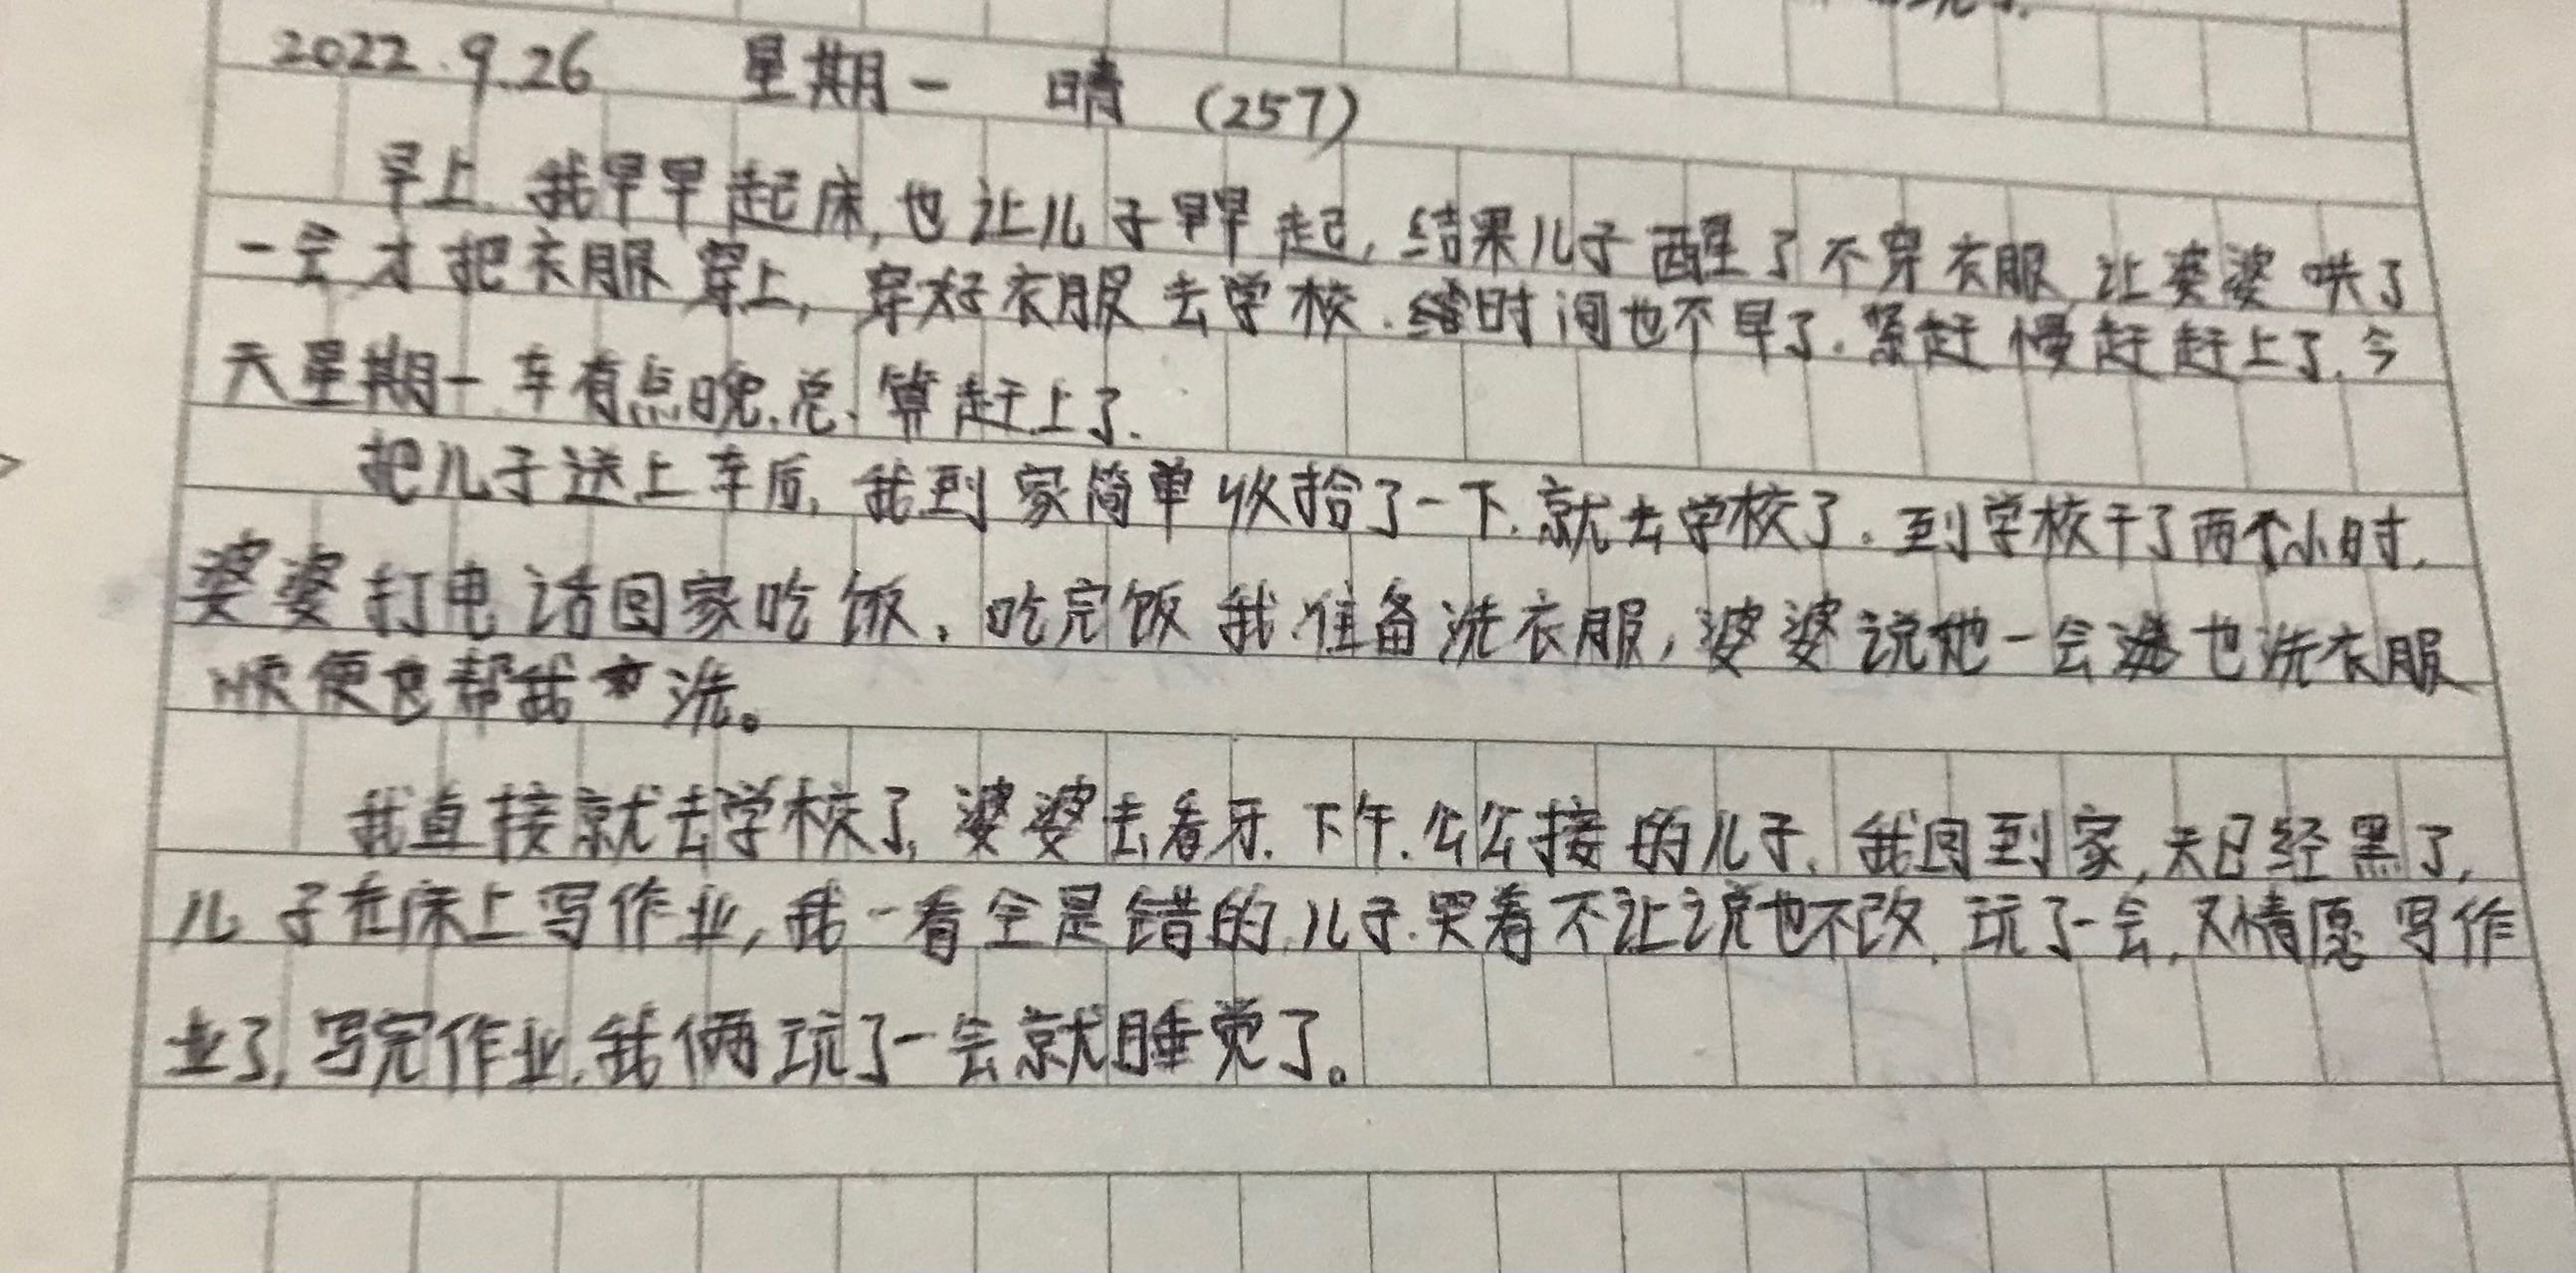 2022.9.26 星期一 晴 (257)
早上,我早早起床,也让儿子早早起,结果儿子醒了不穿衣服,让婆婆哄了
一会才把衣服穿上,穿好衣服去学校.时间也不早了.紧赶慢赶赶上了.今
天星期一车有点晚.总算赶上了.
把儿子送上车后,我到家简单收拾了一下.就去学校了。到学校干了两个小时,
婆婆打电话回家吃饭,吃完饭我准备洗衣服,婆婆说他一会也洗衣服
顺便也帮我洗。
我直接就去学校了,婆婆去看牙.下午.公公接的儿子.我回到家,天已经黑了,
儿子在床上写作业,我一看全是错的,儿子.哭着不让说也不改,玩了一会,又情愿写作
业了,写完作业,我俩玩了一会就睡觉了。